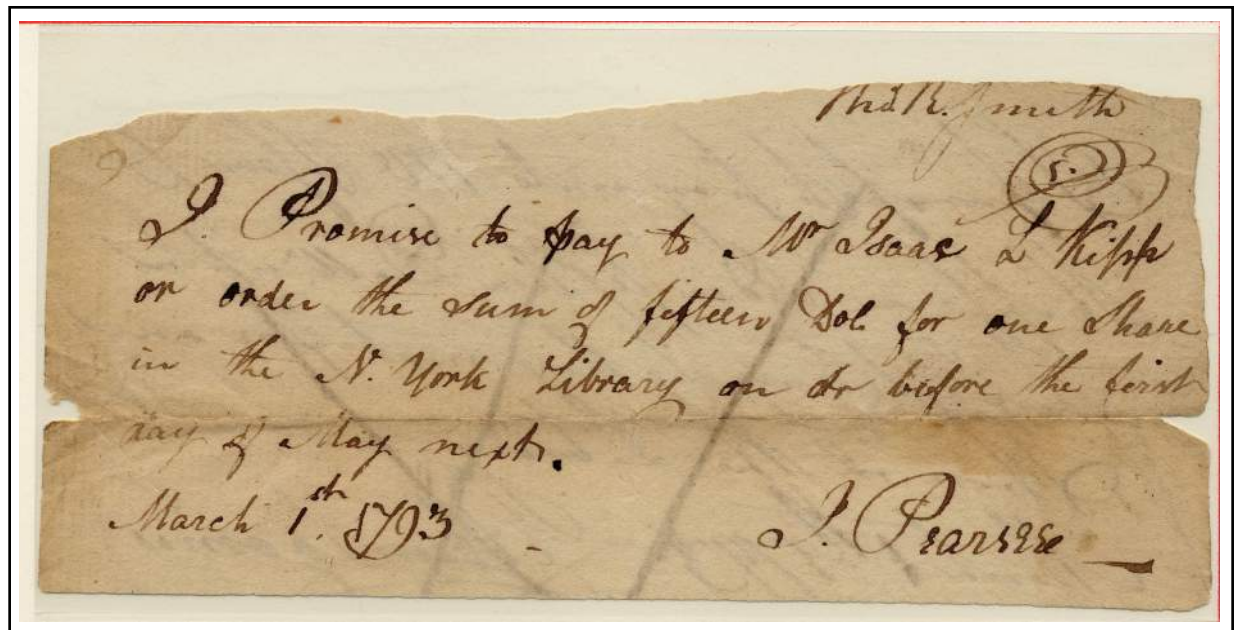 Thos R. Smith
5.
I Promise to pay to Mr Isaac L Kipp
or order the sum of fifteen Dol. for one Share
in the N. York Library on or before the first
day of May next.
March 1st. 1793 -
J.